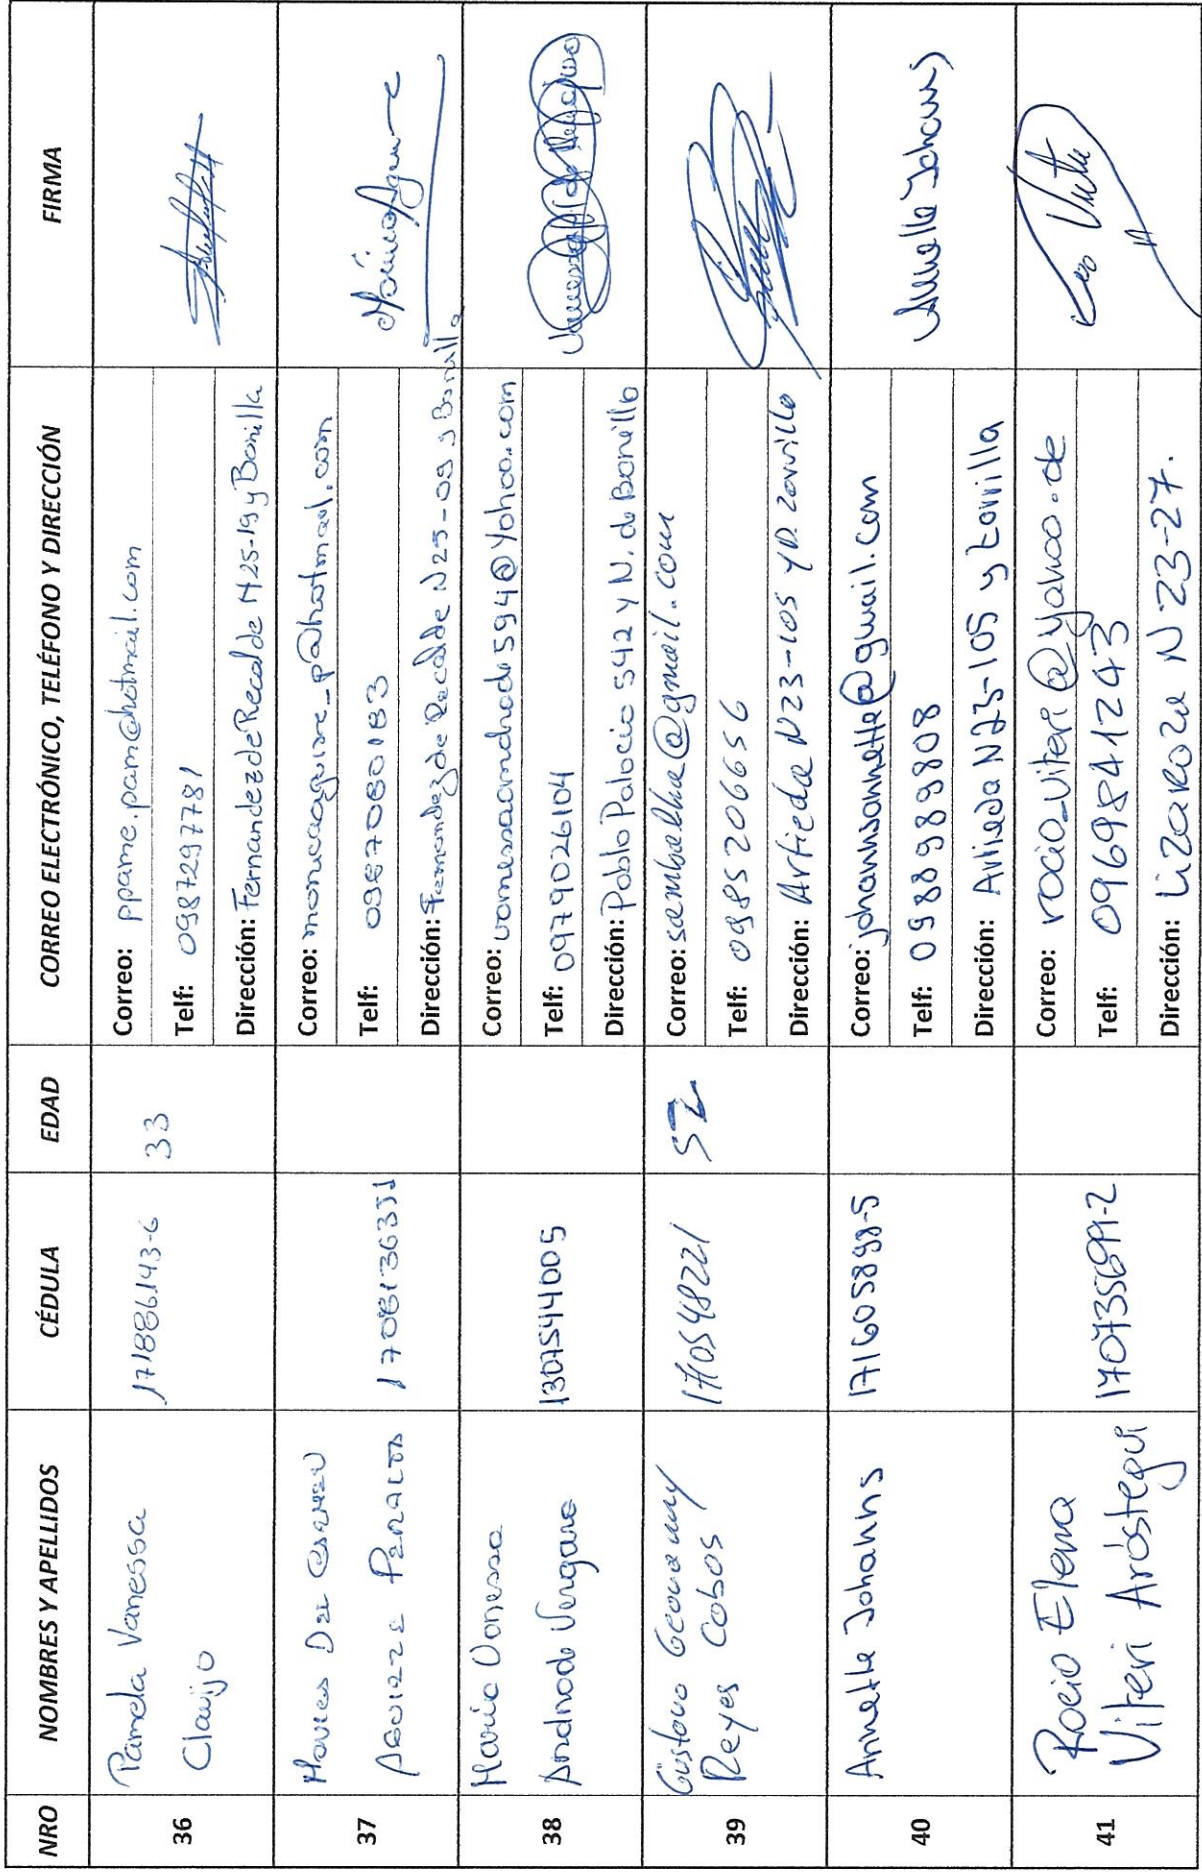 NRO NOMBRES Y APELLIDOS CÉDULA EDAD CORREO ELECTRÓNICO, TELÉFONO Y DIRECCIÓN FIRMA
36
Pamela Vanessa
Clavijo
171886143-6
33
Correo: ppame.pam@hotmail.com
Telf: 0987297781
Dirección: Fernandez de Recalde N25-19 y Bonilla
37
Monica Del Carmen
Aguirre Peralta
1708136351
Correo: monicaaguirre_p@hotmail.com
Telf: 0987080183
Dirección: Fernandez de Recalde N25-09 y Bonilla
Mónica Aguirre
38
Maria Vanessa
Andrade Vergara
1307544005
Correo: vanessaandrade594@yahoo.com
Telf: 0979026104
Dirección: Pablo Palacio 542 y N. de Bonilla
39
Gustavo Geovanny
Reyes Cobos
1710548221
52
Correo: sambalha@gmail.com
Telf: 0985206656
Dirección: Artieda N23-105 y D. Zorrilla
40
Annette Johanns
171605898-5
Correo: johannsannette@gmail.com
Telf: 0988989808
Dirección: Artieda N23-105 y Zorrilla
Annette Johanns
41
Rocio Elena
Viteri Aróstegui
170735699-2
Correo: rocio_viteri@yahoo.de
Telf: 0969841243
Dirección: Lizarazu N23-27.